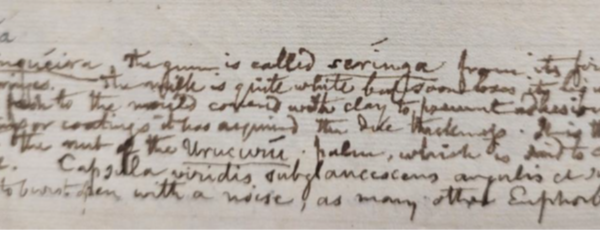 the gum is called seringa from its
The milk is quite white but soon loses its
to the mould covered with clay to prevent adhesion
or coatings it has acquired the due thickness. It is
the nut of the Urucurii palm, which is said to
Capsula viridis subglaucescens angulis
to burst open with a noise, as many other Euphorb